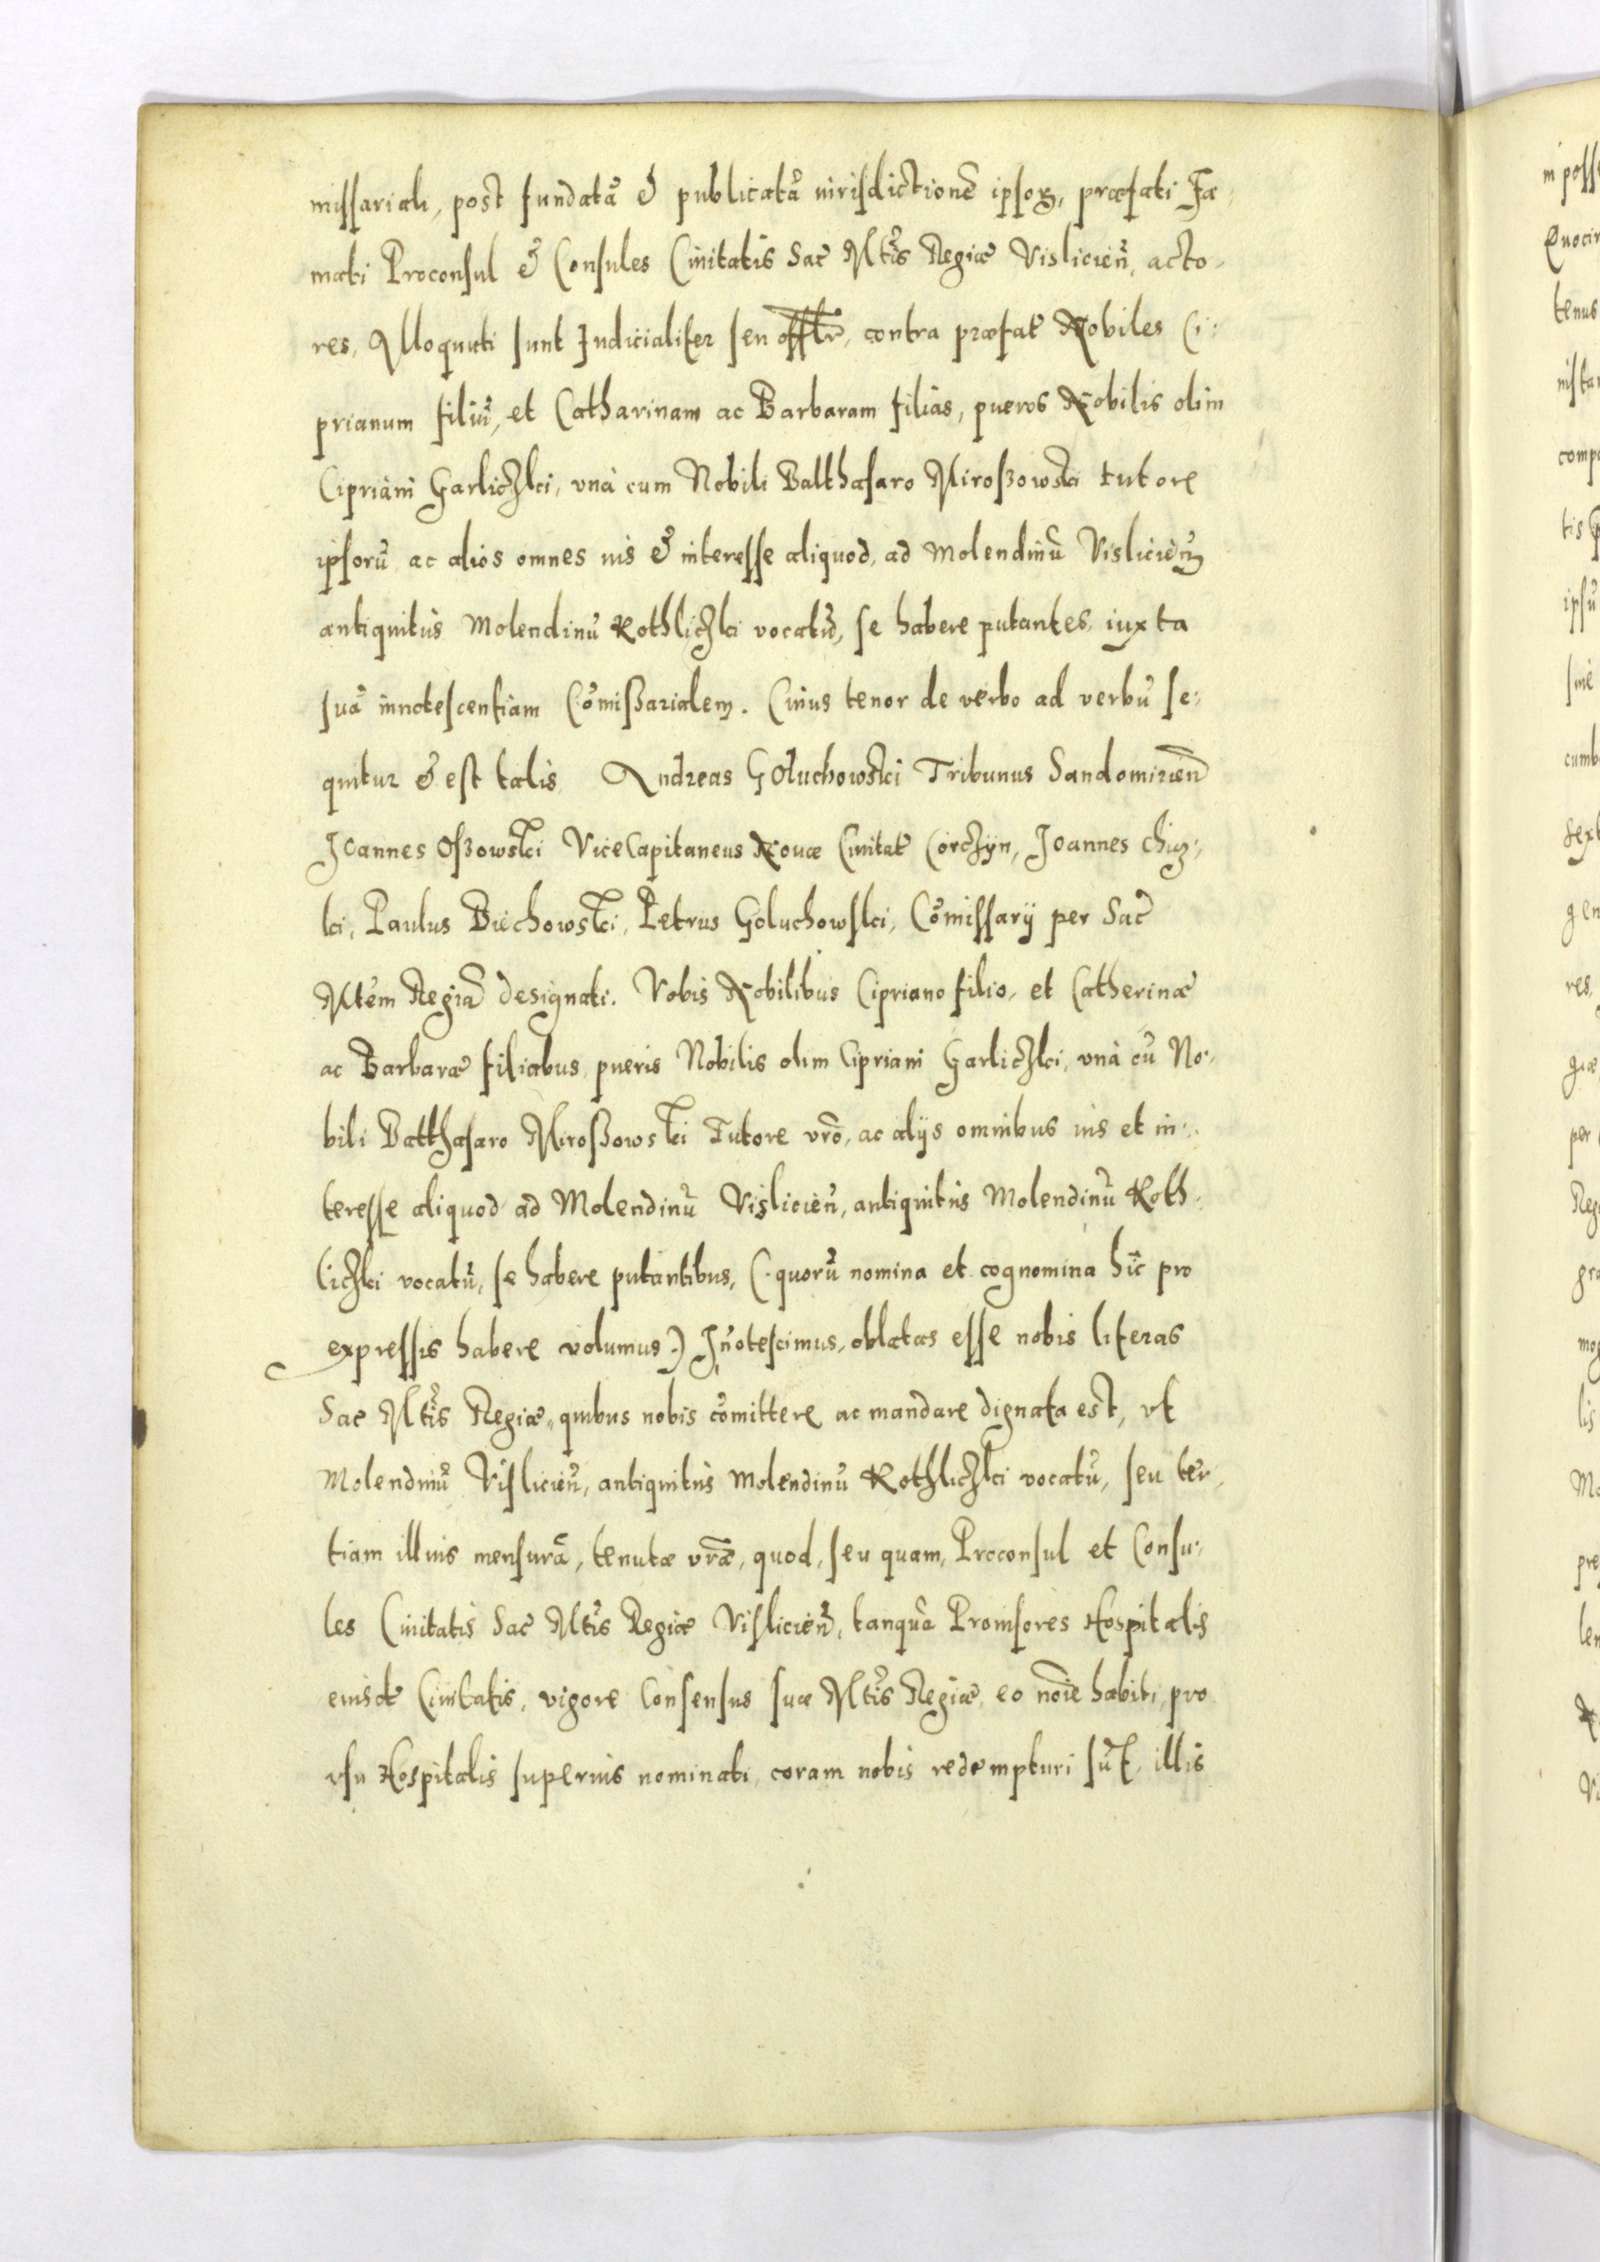 missariali, post fundatã & publicatã iurisdictionẽ ipsoꝝ, præfati Fa-
mati Proconsul & Consules Ciuitatis Sac̃ Mt̃is Regiæ Vislicieñ, acto-
res, Alloquuti sunt Judicialiter seu offl̃r, contra præfat̃ Nobiles Ci:
prianum filiũ, et Catharinam ac Barbaram filias, pueros Nobilis olim
Cipriani Garliczki, vnà cum Nobili Balthasaro Miroßowski tutore
ipsorũ ac alios omnes ius & interesse aliquod, ad Molendinũ Vislicieñ
antiquitùs Molendinũ Kothliczki vocatũ, se habere putantes, iuxta
suã innotescentiam Com̃ißarialem. Cuius tenor de verbo ad verbũ se:
quitur & est talis Andreas Goluchowski Tribunus Sandomirieñ
Joannes Oßowski ViceCapitaneus Nouæ Ciuitat̃ Corczyn, Joannes Chiz:
ki, Paulus Biechowski, Petrus Goluchowski, Com̃issarij per Sac̃
Mt̃em Regiã designati. Vobis Nobilibus Cipriano filio, et Catherinæ
ac Barbaræ filiabus, pueris Nobilis olim Cipriani Garliczki, vnà cũ No:
bili Balthasaro Miroßowski Tutore vr̃o, ac alijs omnibus ius et in:
teresse aliquod ad Molendinũ Vislicieñ, antiquitùs Molendinũ Koth:
liczki vocatũ, se habere putantibus, (quorũ nomina et cognomina hic pro
expressis habere volumus) Iñotescimus, oblatas esse nobis literas
Sac̃ Mt̃is Regiæ, quibus nobis com̃ittere ac mandare dignata est, vt
Molendinũ Vislicieñ, antiquitùs Molendinũ Kothliczki vocatũ, seu ter-
tiam illius mensurã, tenutæ vr̃æ, quod, seu quam, Proconsul et Consu:
les Ciuitatis Sac̃ Mt̃is Regiæ Vislicieñ, tanquã Prouisores Hospitalis
eiusdẽ Ciuitatis, vigore Consensus suæ Mt̃is Regiæ, eo noĩe habiti, pro
vsu Hospitalis superius nominati, coram nobis redempturi sũt, illis